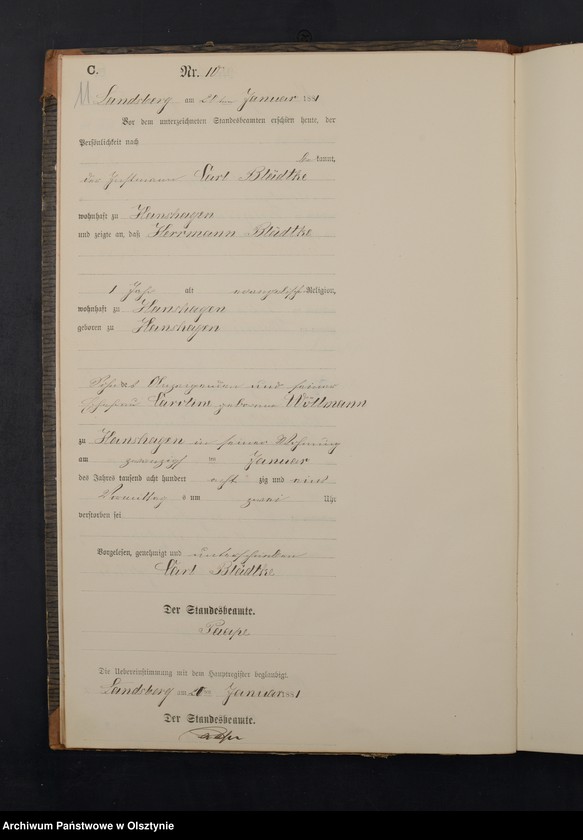 C. Nr. 10
11
Landsberg am 20 ten Januar 1881
Vor dem unterzeichneten Standesbeamten erschien heute, der
Persönlichkeit nach
be kannt,
der Carl Blädtke
wohnhaft zu Hanshagen
und zeigte an, daß Herrmann Blädtke
1 Jahr alt evangelisch Religion,
wohnhaft zu Hanshagen
geboren zu Hanshagen
Sohn des Anzeigenden und seiner
Ehefrau Caroline geborene Wöllmann
zu Hanshagen in seiner Wohnung
am zwanzigst en Januar
des Jahres tausend acht hundert acht zig und eins
Vormittag s um zwei Uhr
verstorben sei.
Vorgelesen, genehmigt und unterschrieben
Carl Blädtke
Der Standesbeamte.
Die Uebereinstimmung mit dem Hauptregister beglaubigt.
Landsberg am 20 ten Januar 1881
Der Standesbeamte.
Archiwum Państwowe w Olsztynie